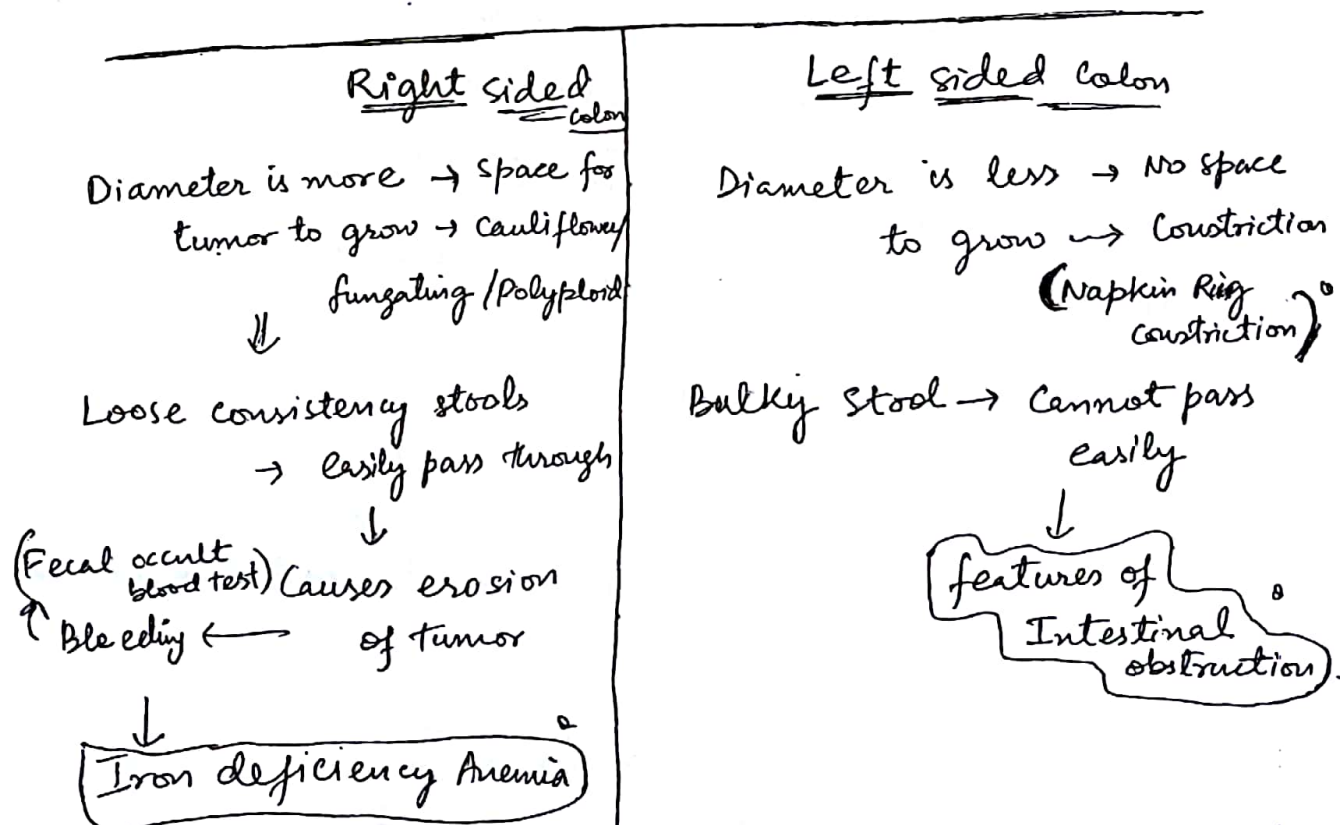 Right sided
colon
Diameter is more → space for
tumor to grow → cauliflower/
fungating / Polyploid
⇓
Loose consistency stools
→ easily pass through
↓
(Fecal occult
blood test) Causes erosion
↑ Bleeding ← of tumor
↓
Iron deficiency Anemia
Left sided colon
Diameter is less → No space
to grow → Constriction
(Napkin Ring
constriction)
Bulky Stool → Cannot pass
easily
↓
features of
Intestinal
obstruction.